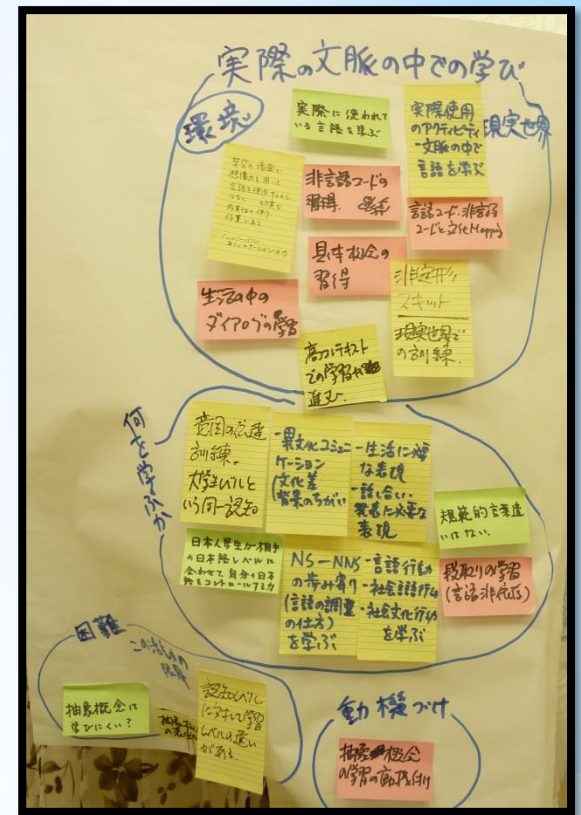 実際の文脈の中での学び
環境
現実世界
実際に使われて
いる言語を学ぶ
実際使用
のアクティビティ
-文脈の中で
言語を学ぶ
非言語コードの
習得
言語コード・非言語
コードと文化Mapping
具体概念の
習得
生活の中の
ダイアログの学習
非定形
スキット
現実世界で
の訓練.
高コンテキスト
での学習が
進む.
何を学ぶか
意図の伝達
訓練。
大学生レベルと
いう同一認知
-異文化コミュニ
ケーション
(文化差
背景のちがい
-生活に必要
な表現
-話し合い・
発表に必要な
表現
規範的言葉遣
いはない.
日本人学生が相手
の日本語レベルに
合わせて、自分の日本
語をコントロールする力
NS-NNS
の歩み寄り
(言語の調整
の仕方)
を学ぶ
-言語行動
-社会言語行動
-社会文化行動
を学ぶ
段取りの学習
(言語非依存)
困難
この活動の
限界
抽象概念は
学びにくい?
認知レベル
に対して学習
レベルの違い
がある.
動機づけ
抽象概念
の学習の動機付け